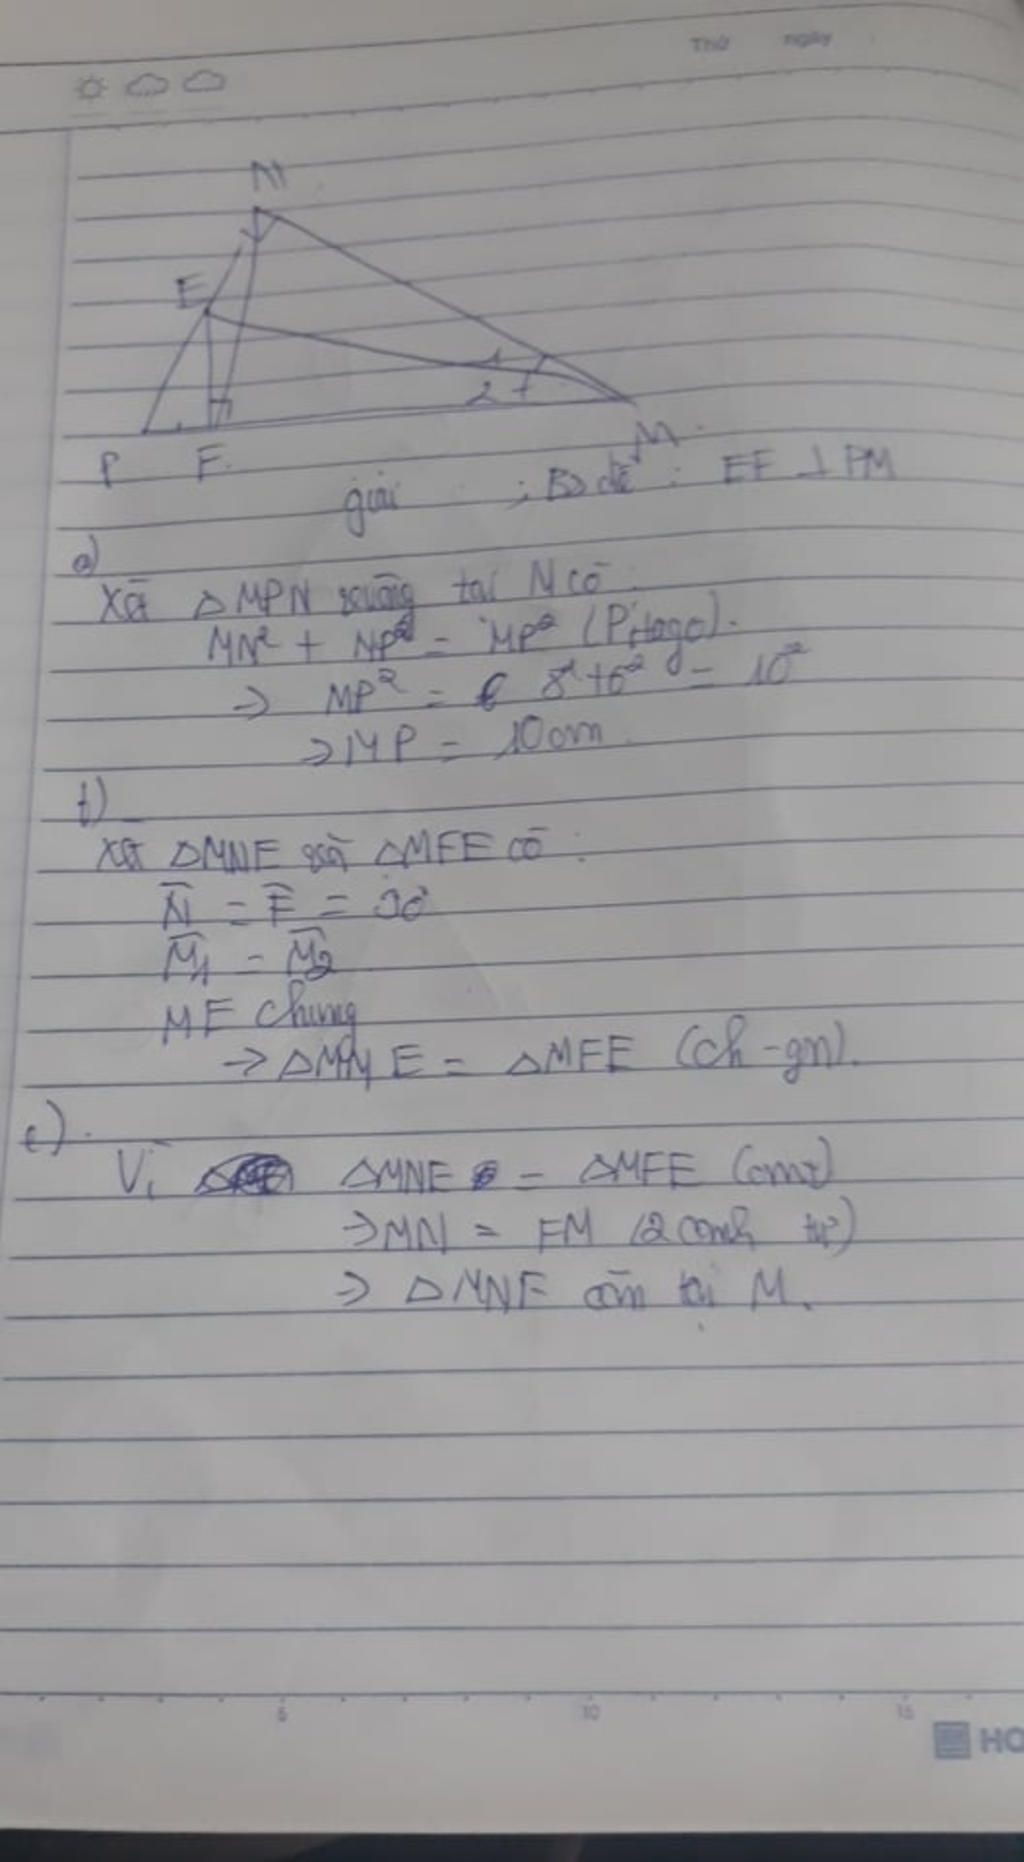 Thứ ngày
N
E
1
2
M
P F
giải ; Bổ đề : EF ⊥ PM
a)
Xét △MPN vuông tại N có
MN² + NP² = MP² (Pitago).
=> MP² = 8²+6² = 10²
=> MP = 10cm
b)
Xét △MNE và △MFE có :
N = F = 90°
M1 = M2
ME chung
-> △MNE = △MFE (ch-gn).
c).
Vì △MNE = △MFE (cmt)
=> MN = FM (2 cạnh tứ)
=> △MNF cân tại M.
5 10 15
HO